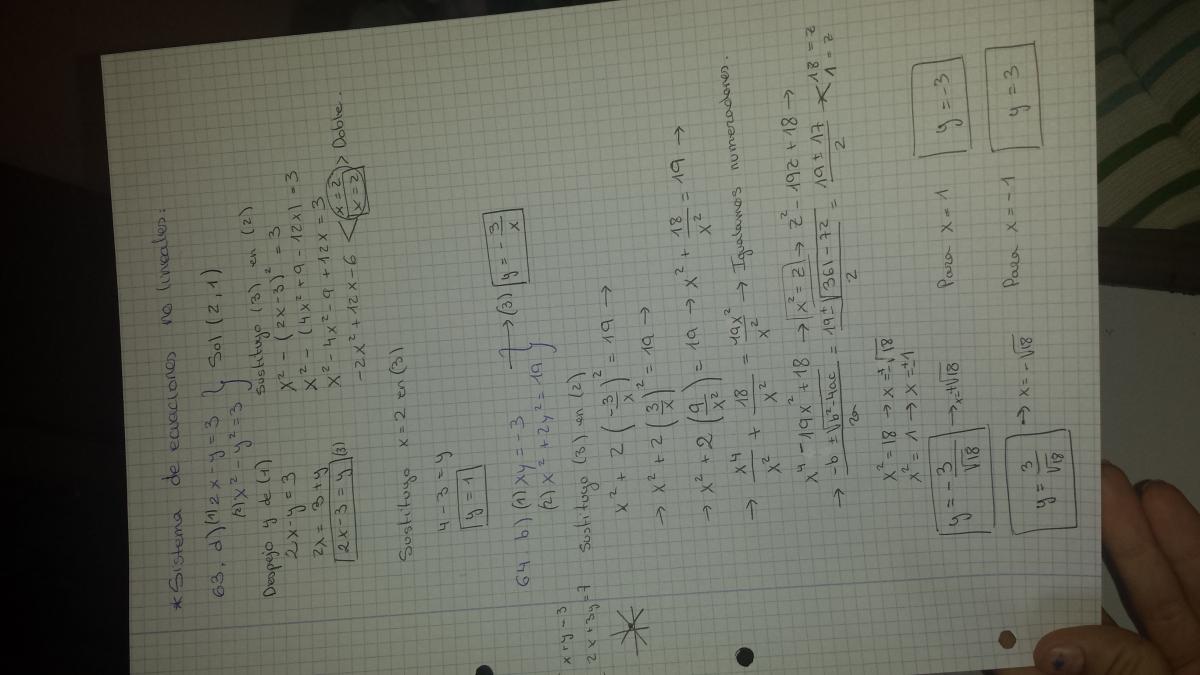 * Sistema de ecuaciones no lineales:
63. d) (1) 2x - y = 3 } Sol (2, 1)
(2) x² - y² = 3
Despejo y de (1)
2x - y = 3
2x = 3 + y
2x - 3 = y (3)
Sustituyo (3) en (2)
x² - (2x - 3)² = 3
x² - (4x² + 9 - 12x) = 3
x² - 4x² - 9 + 12x = 3
-2x² + 12x - 6 < x = 2 x = 2 > Doble.
Sustituyo x = 2 en (3)
4 - 3 = y
y = 1
64. b) (1) xy = -3 → (3) y = -3/x
(2) x² + 2y² = 19 }
x + y = 3
2x + 3y = 7
Sustituyo (3) en (2)
x² + 2 (-3/x)² = 19 →
→ x² + 2 (3/x)² = 19 →
→ x² + 2 (9/x²) = 19 → x² + 18/x² = 19 →
→ x⁴/x² + 18/x² = 19x²/x² → Igualamos numeradores.
x⁴ - 19x² + 18 → x² = z → z² - 19z + 18 →
→ -b ± √b² - 4ac / 2a = 19 ± √361 - 72 / 2 = 19 ± 17 / 2 < 18 = z 1 = z
x² = 18 → x = ±√18
x² = 1 → x = ±1
y = -3/√18 → x = +√18 Para x = 1 y = -3
y = 3/√18 → x = -√18 Para x = -1 y = 3